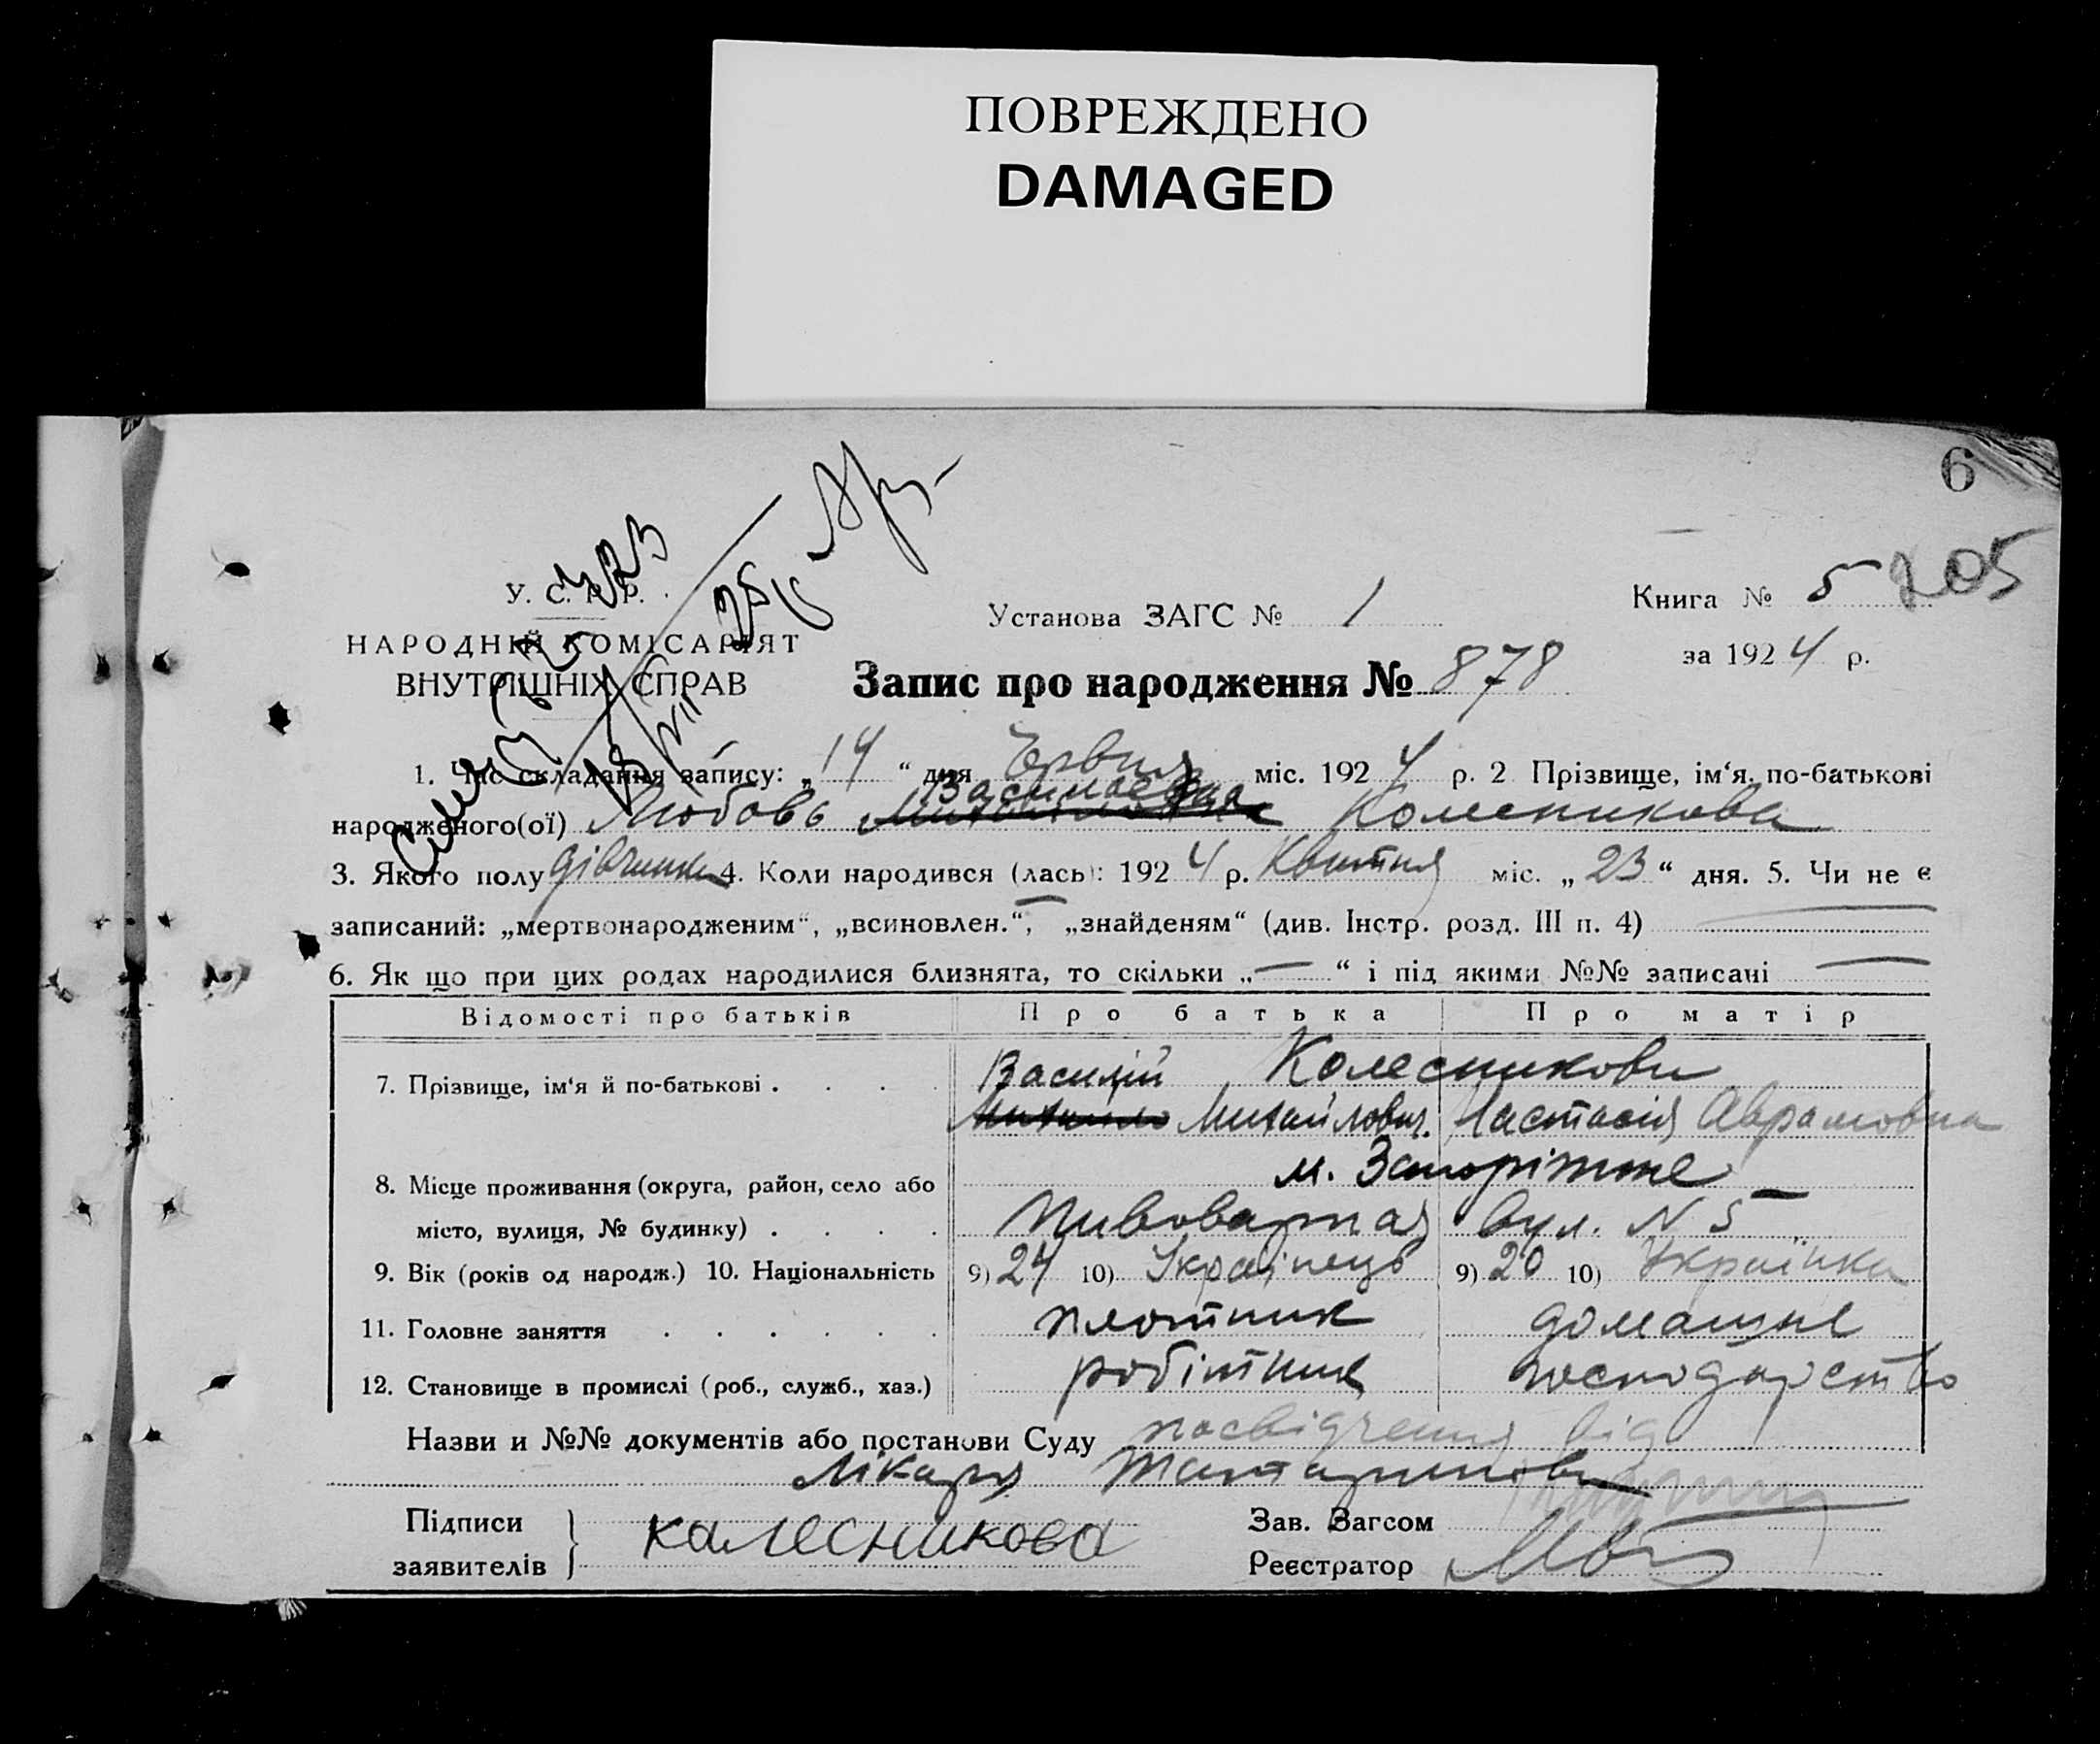 ПОВРЕЖДЕНО
DAMAGED
6
205
У. С. Р. Р.
НАРОДНІЙ КОМІСАРІЯТ
ВНУТРІШНІХ СПРАВ
Установа ЗАГС № 1
Книга № 5
за 1924 р.
Запис про народження № 878
1. Час складання запису: „14“ дня Червня міс. 1924 р. 2 Прізвище, ім‘я, по-батькові
Василевна
народженого(ої) Любовь Колесникова
3. Якого полу дівчинка 4. Коли народився (лась): 1924 р. Квітня міс. „23“ дня. 5. Чи не є
записаний: „мертвонародженим“, „всиновлен.“, „знайденям“ (див. Інстр. розд. III п. 4)
6. Як що при цих родах народилися близнята, то скільки „—“ і під якими №№ записані —
Відомості про батьків Про батька Про матір
7. Прізвище, ім‘я й по-батькові . . . . Василій Колесникови
Михайло Михайлович. Настасія Аврамовна
м. Запоріжже
8. Місце проживання (округа, район, село або
місто, вулиця, № будинку) . . . . Пивоварная вул. N 5
9. Вік (років од народж.) 10. Національність 9) 24 10) Українець 9) 20 10) Українка
11. Головне заняття . . . . . . плотник домашнє
12. Становище в промислі (роб., служб., хаз.) робітник господарство
Назви и №№ документів або постанови Суду посвідчення від
Лікаря
Підписи
заявителів } калесникова
Зав. Загсом
Реєстратор